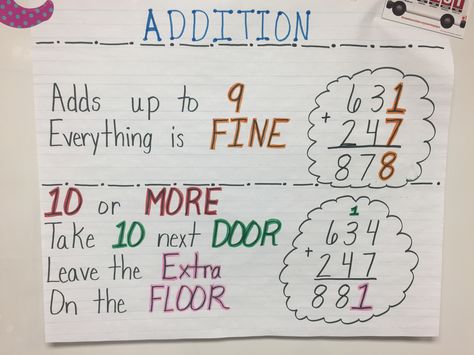 ADDITION
Adds up to 9
Everything is FINE
631
+ 247
878
10 or MORE
Take 10 next DOOR
Leave the Extra
On the FLOOR
1
634
+ 247
881